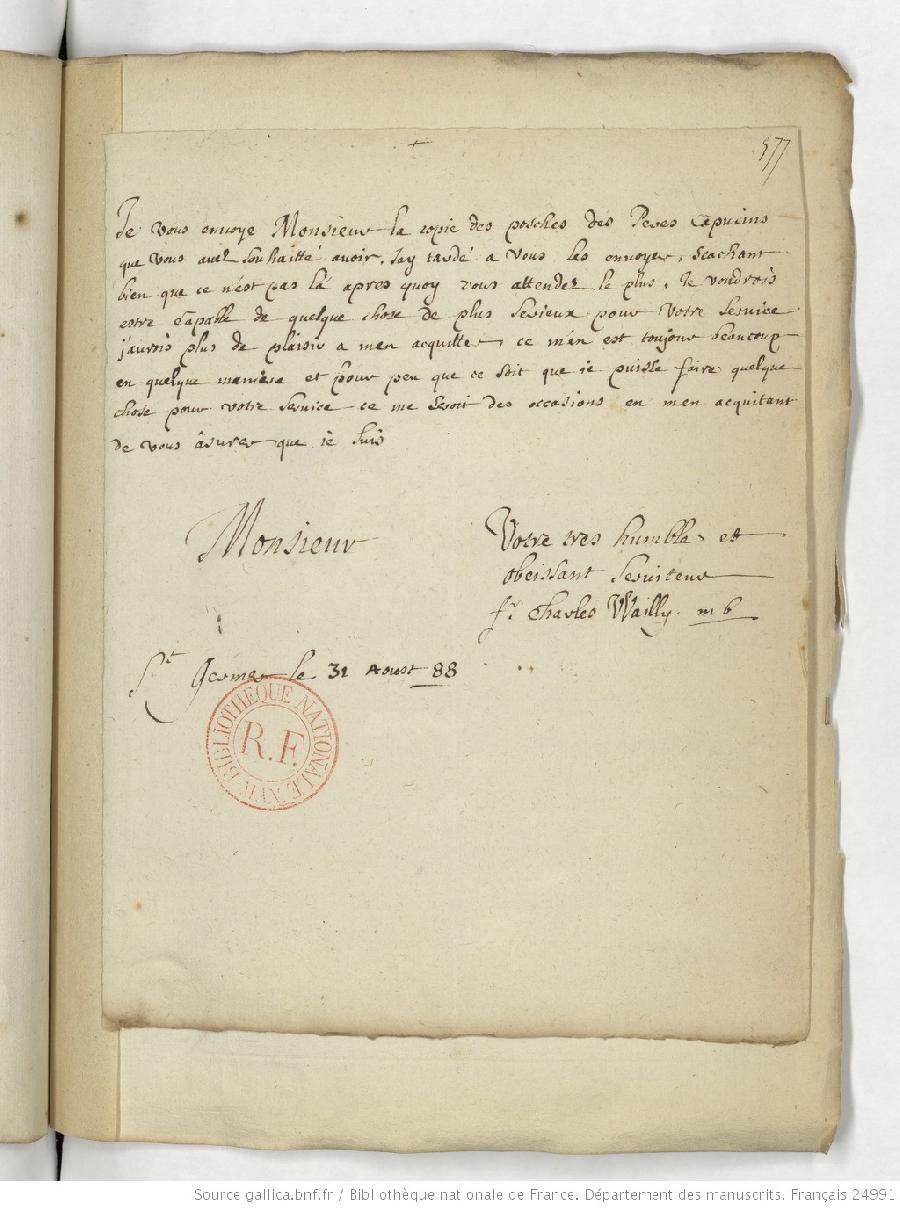 577
Je vous envoye Monsieur la copie des porches des Peres Capucins
que vous avez souhaitté avoir, Jay tardé a vous les envoyer, scachant
bien que ce n'est pas là apres quoy vous attendez le plus, Je voudrois
estre capable de quelque chose de plus serieux pour votre service
j'aurois plus de plaisir a men acquitter, ce m'an est toujour beaucoup
en quelque maniere et pour peu que ce soit que ie puisse faire quelque
chose pour votre service ce me seroit des occasions en men acquitant
de vous âsurer que ie suis
Monsieur
Votre tres humble et
obeissant serviteur
fr. Charles Wailly. m b
St Germer le 31 Aoust 88
BIBLIOTHEQUE NATIONALE MAN
R.F.
Source gallica.bnf.fr / Bibliothèque nationale de France. Département des manuscrits. Français 24991